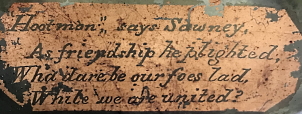 "Hoot mon", says Sawney,
As friendship he plighted,
Wha dare be our foes lad,
While we are united?